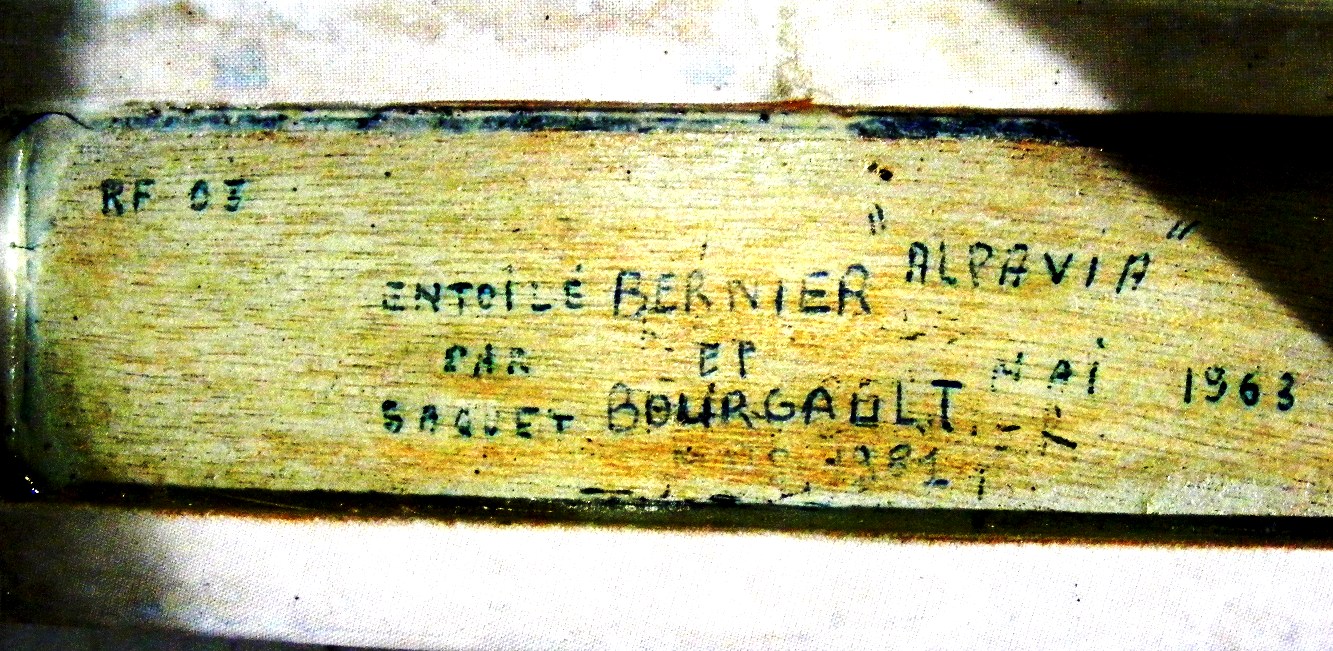 RF 03
" ALPAVIA "
ENTOILÉ BERNIER
PAR ET
MAI 1963
SAQUET BOURGAULT
1981